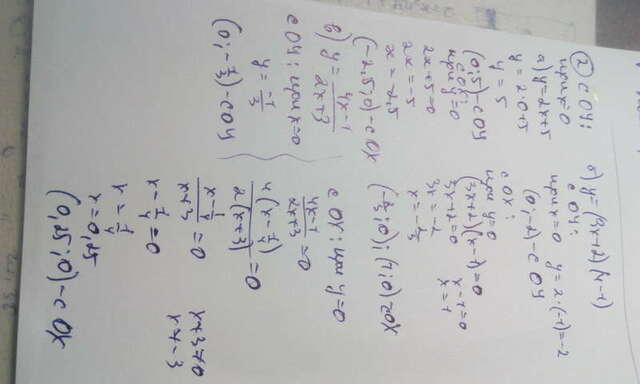 ② с OY:
а) y=2x+5
при x=0
y = 2·0+5
y = 5
(0; 5) - с OY
с OX:
при y=0
2x+5=0
2x = -5
x = -2,5
(-2,5; 0) - с OX
б) y=(3x+2)(x-1)
с OY:
при x=0 y=2·(-1)=-2
(0; -2) - с OY
с OX:
при y=0
(3x+2)(x-1)=0
3x+2=0 x-1=0
3x=-2 x=1
x = -2/3
(-2/3; 0); (1; 0) - OX
в) y = 4x-1 / 2x+3
с OY: при x=0
y = -1/3
(0; -1/3) - с OY
с OX: при y=0
4x-1 / 2x+3 = 0
4(x-1/4) / 2(x+3) = 0
x-1/4 / x+3 = 0
x+3≠0
x≠-3
x-1/4=0
x = 1/4
x=0,25
(0,25; 0) - с OX